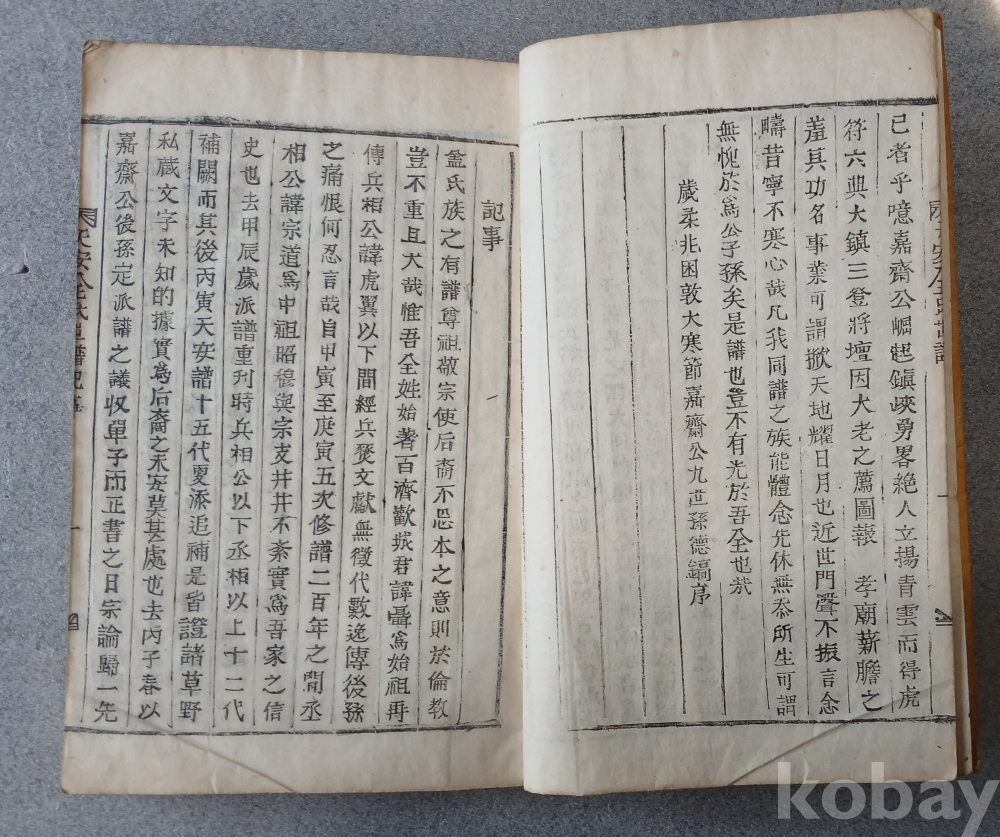 已者乎噫嘉齋公崛起鎮峽勇畧絶人立揚青雲而得虎
符六典大鎮三登將壇因大老之薦圖報 孝朝薪膽之
羞其功名事業可謂掀天地耀日月也近世門聲不振言念
疇昔寧不寒心哉凡我同譜之族能體念先休無忝所生可謂
無愧於爲公子孫矣是譜也豈不有光於吾全也㢤
歲柔兆困敦大寒節嘉齋公九世孫德鎬序
記事
盆氏族之有譜尊祖敬宗使后裔不忘本之意則於倫教
豈不重且大哉惟吾全姓始著百濟歡城君諱聶爲始祖再
傳兵相公諱虎翼以下間經兵燹文獻無徵代數逸傳後孫
之痛恨何忍言哉自甲寅至庚寅五次修譜二百年之間丞
相公諱宗道爲中祖昭穆與宗支井井不紊實爲吾家之信
史也去甲辰歲派譜重刊時兵相公以下丞相以上十二代
補闕而其後丙寅天安譜十五代夏添追補是皆證諸草野
私藏文字未知的據實爲后裔之未安莫甚處也去丙子春以
嘉齋公後孫定派譜之議収單子而正書之日宗論歸一先
天安全氏世譜記事
一
天安全氏世譜
一
kobay